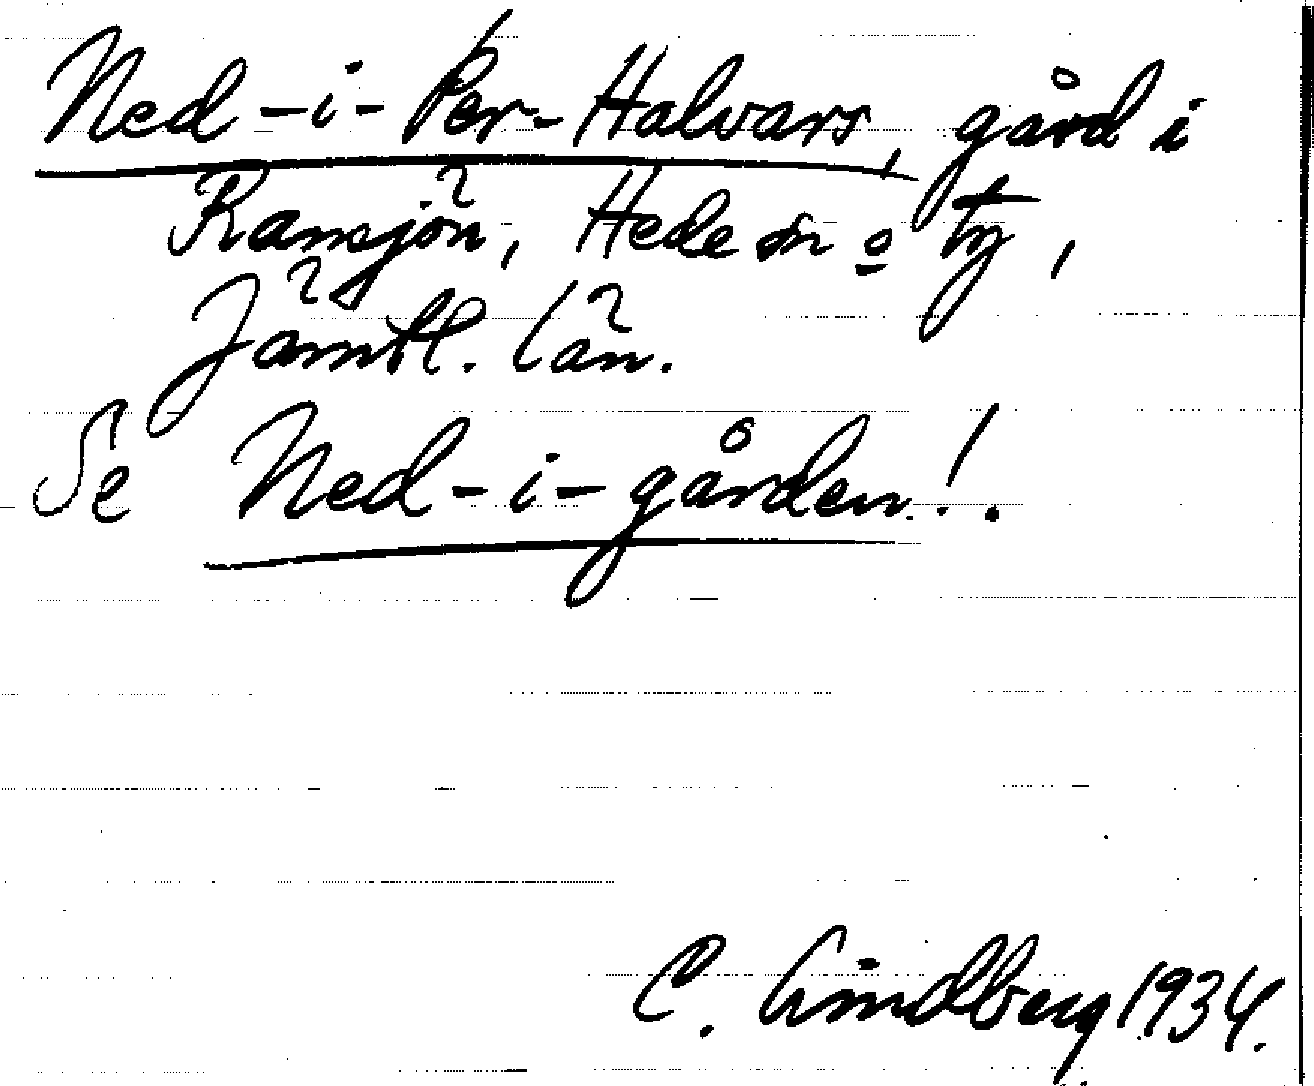 Ned-i-Per-Halvars, gård i
Ransjön, Hede sn o tg,
Jämtl. län.
Se Ned-i-gården!.
C. Lindberg 1934.